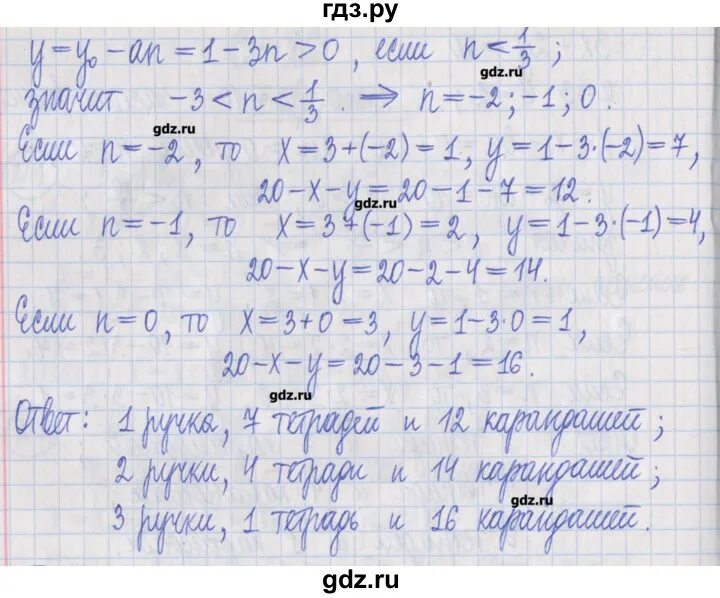 гдз.ру
y = y₀ - an = 1 - 3n > 0, если n < 1/3;
gdz.ru
значит -3 < n < 1/3. ⇒ n = -2; -1; 0.
gdz.ru
Если n = -2, то x = 3 + (-2) = 1, y = 1 - 3·(-2) = 7,
20 - x - y = 20 - 1 - 7 = 12.
gdz.ru
Если n = -1, то x = 3 + (-1) = 2, y = 1 - 3·(-1) = 4,
20 - x - y = 20 - 2 - 4 = 14.
Если n = 0, то x = 3 + 0 = 3, y = 1 - 3·0 = 1,
20 - x - y = 20 - 3 - 1 = 16.
gdz.ru
Ответ: 1 ручка, 7 тетрадей и 12 карандашей;
2 ручки, 4 тетради и 14 карандашей;
gdz.ru
3 ручки, 1 тетрадь и 16 карандашей.
gdz.ru